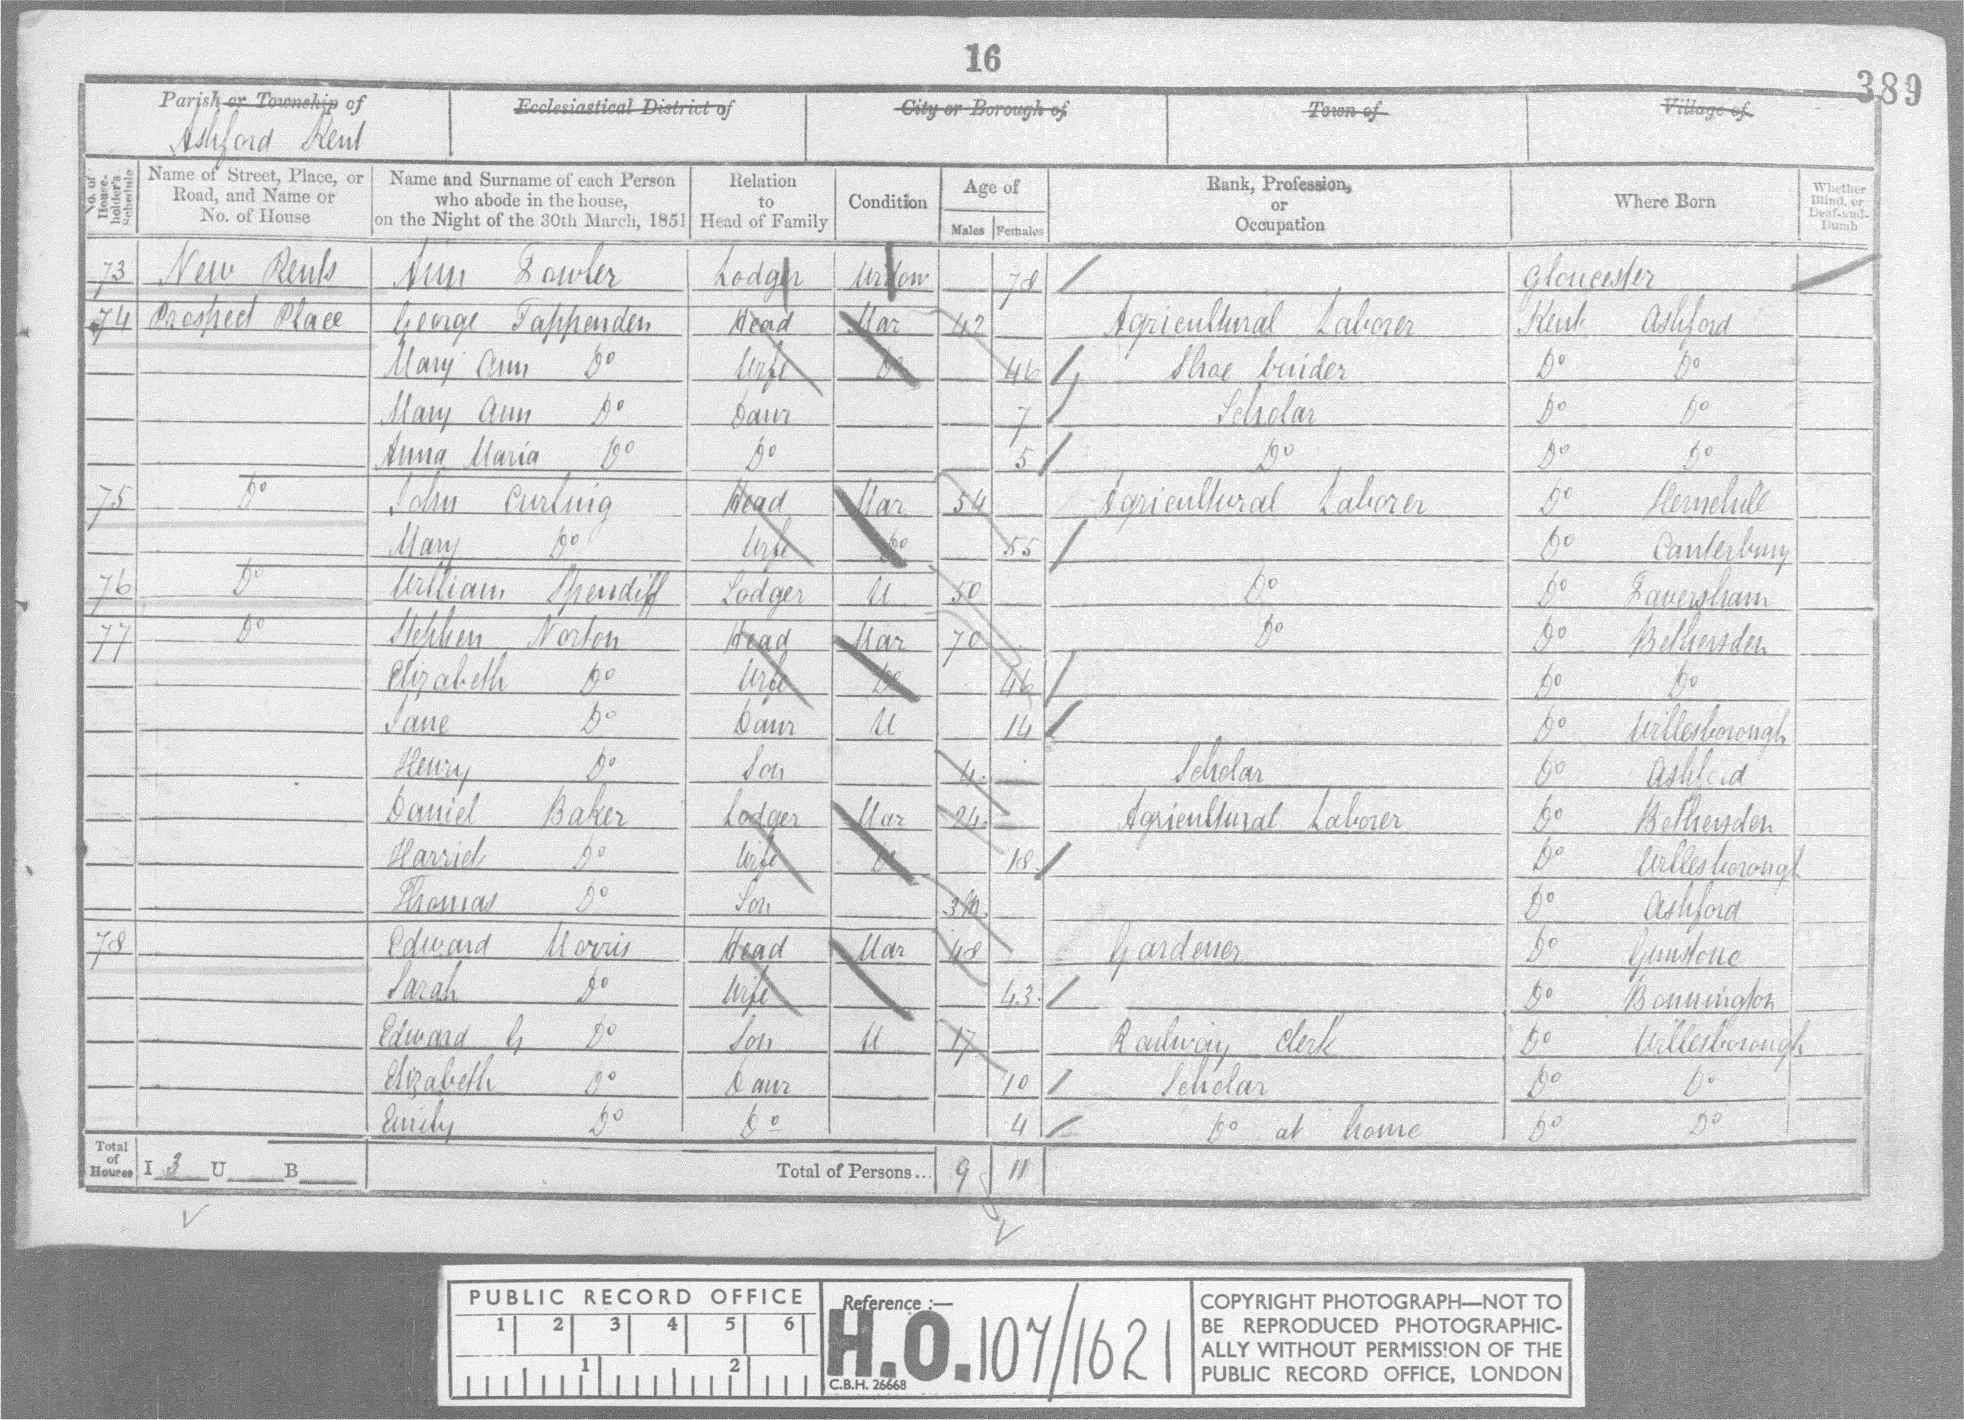 16
389
Parish or Township of
Ashford Kent
Ecclesiastical District of
City or Borough of
Town of
Village of
No. of House-holder's Schedule
Name of Street, Place, or Road, and Name or No. of House
Name and Surname of each Person who abode in the house, on the Night of the 30th March, 1851
Relation to Head of Family
Condition
Age of
Males Females
Rank, Profession, or Occupation
Where Born
Whether Blind, or Deaf-and-Dumb
73 New Rents Ann Fowler Lodger Widow 78 Gloucester
74 Prospect Place George Tappenden Head Mar 42 Agricultural Laborer Kent Ashford
Mary Ann Do Wife Do 46 Shoe binder Do Do
Mary Ann Do Daur 7 Scholar Do Do
Anna Maria Do Do 5 Do Do Do
75 Do John Curling Head Mar 54 Agricultural Laborer Do Hernehill
Mary Do Wife Do 55 Do Canterbury
76 Do William Spendiff Lodger U 50 Do Do Faversham
77 Do Stephen Norton Head Mar 70 Do Do Bethersden
Elizabeth Do Wife Do 46 Do Do
Jane Do Daur U 14 Do Willesborough
Henry Do Son 4 Scholar Do Ashford
Daniel Baker Lodger Mar 24 Agricultural Laborer Do Bethersden
Harriet Do Wife Do 18 Do Willesborough
Thomas Do Son 3m Do Ashford
78 Edward Morris Head Mar 48 Gardener Do
Sarah Do Wife 43 Do Bonnington
Edward G Do Son U 17 Railway Clerk Do Willesborough
Elizabeth Do Daur 10 Scholar Do Do
Emily Do Do 4 Do at home Do Do
Total of Houses I 3 U B Total of Persons... 9 11
PUBLIC RECORD OFFICE
1 2 3 4 5 6
1 2
Reference :—
H.O. 107/1621
C.B.H. 26668
COPYRIGHT PHOTOGRAPH—NOT TO
BE REPRODUCED PHOTOGRAPHIC-
ALLY WITHOUT PERMISSION OF THE
PUBLIC RECORD OFFICE, LONDON